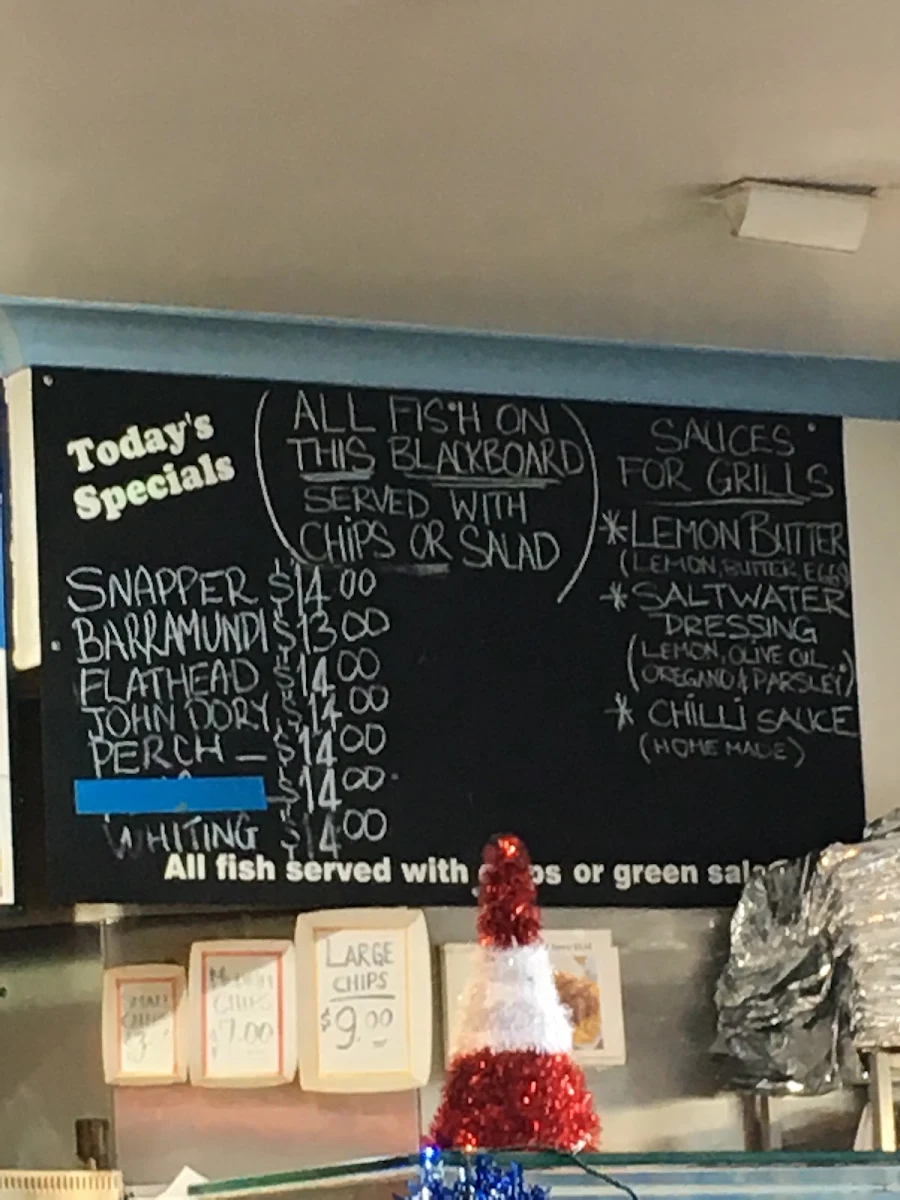 Today's
Specials
ALL FISH ON
THIS BLACKBOARD
SERVED WITH
CHIPS OR SALAD
SNAPPER $14.00
BARRAMUNDI $13.00
FLATHEAD $14.00
JOHN DORY $14.00
PERCH – $14.00
$14.00
WHITING $14.00
SAUCES
FOR GRILLS
*LEMON BUTTER
(LEMON, BUTTER, EGGS)
*SALTWATER
DRESSING
(LEMON, OLIVE OIL,
OREGANO & PARSLEY)
* CHILLI SAUCE
(HOME MADE)
All fish served with or green
SMALL
CHIPS
MEDIUM
CHIPS
$7.00
LARGE
CHIPS
$9.00